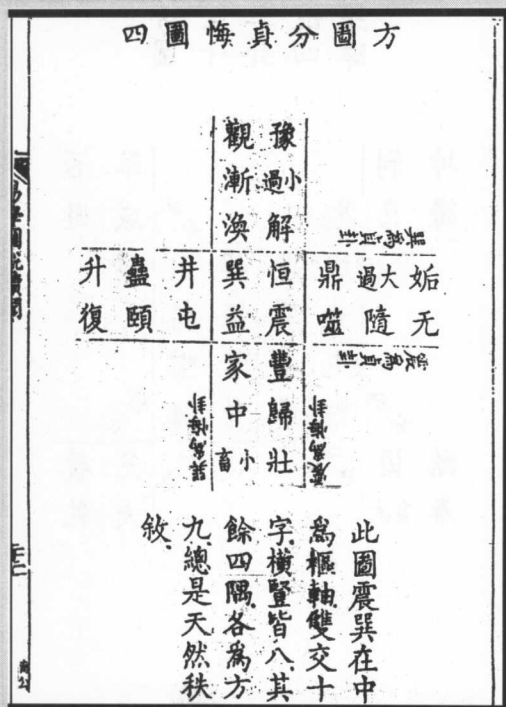 方圖分貞悔圖四
豫 觀
小過 漸
解 渙
巽為貞卦
姤 大過 鼎 恒 巽 井 蠱 升
无 隨 噬 震 益 屯 頤 復
震為貞卦
豐 家
歸 中
壯 小畜
震為悔卦
巽為悔卦
此圖震巽在中
為樞軸雙交十
字、橫豎皆八、其
餘四隅、各為方
九、總是天然秩
敘、